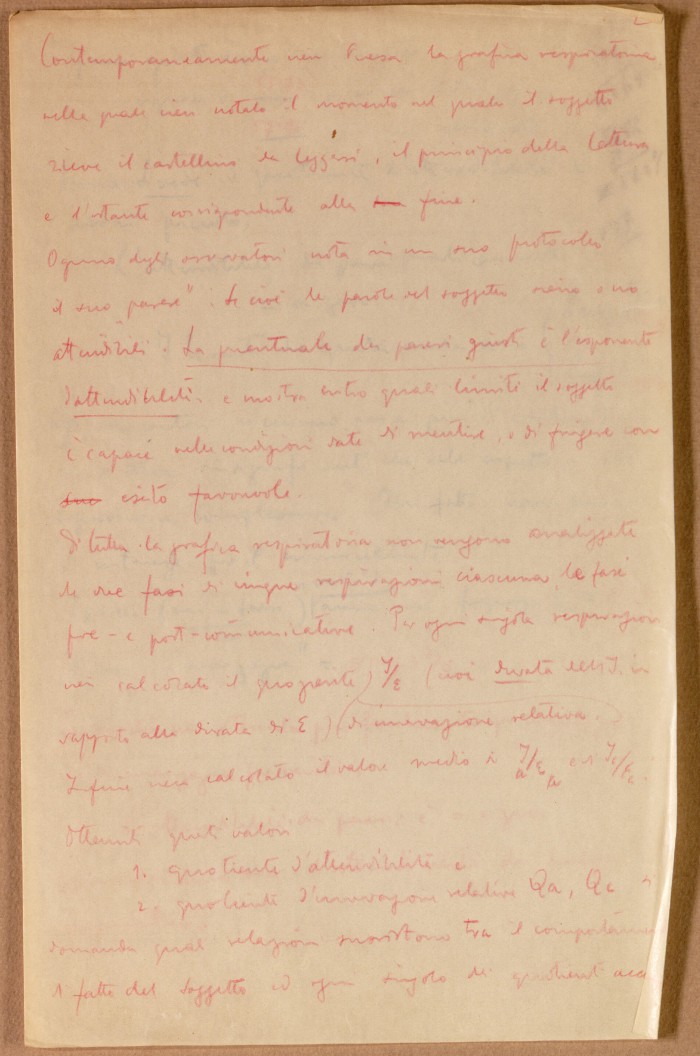 2
Contemporaneamente vien presa la grafica respiratoria
nella quale vien notato il momento nel quale il soggetto
riceve il cartellino da leggersi, il principio della lettura
e l'istante corrispondente alla fine.
Ognuno degli osservatori nota in un suo protocollo
il suo "parere": se cioè le parole del soggetto siano o no
attendibili. La percentuale dei pareri giusti è l'esponente
d'attendibilità e mostra entro quali limiti il soggetto
è capace nelle condizioni date di mentire, o di fingere con
esito favorevole.
Di tutta la grafica respiratoria non vengono analizzate
le due fasi di cinque respirazioni ciascuna, le fasi
pre- e post-comunicative. Per ogni singola respirazione
vien calcolato il quoziente I/E (cioè durata dell'I. in
rapporto alla durata di E) (di innervazione relativa.
Infine vien calcolato il valore medio di I/E a e di I/E c.
Ottenuti questi valori
1. quotiente d'attendibilità e
2. quotiente d'innervazione relativa Qa, Qc si
domanda quali relazioni sussistono tra il comportamen
di fatto del soggetto ed ogni singolo dei quotienti